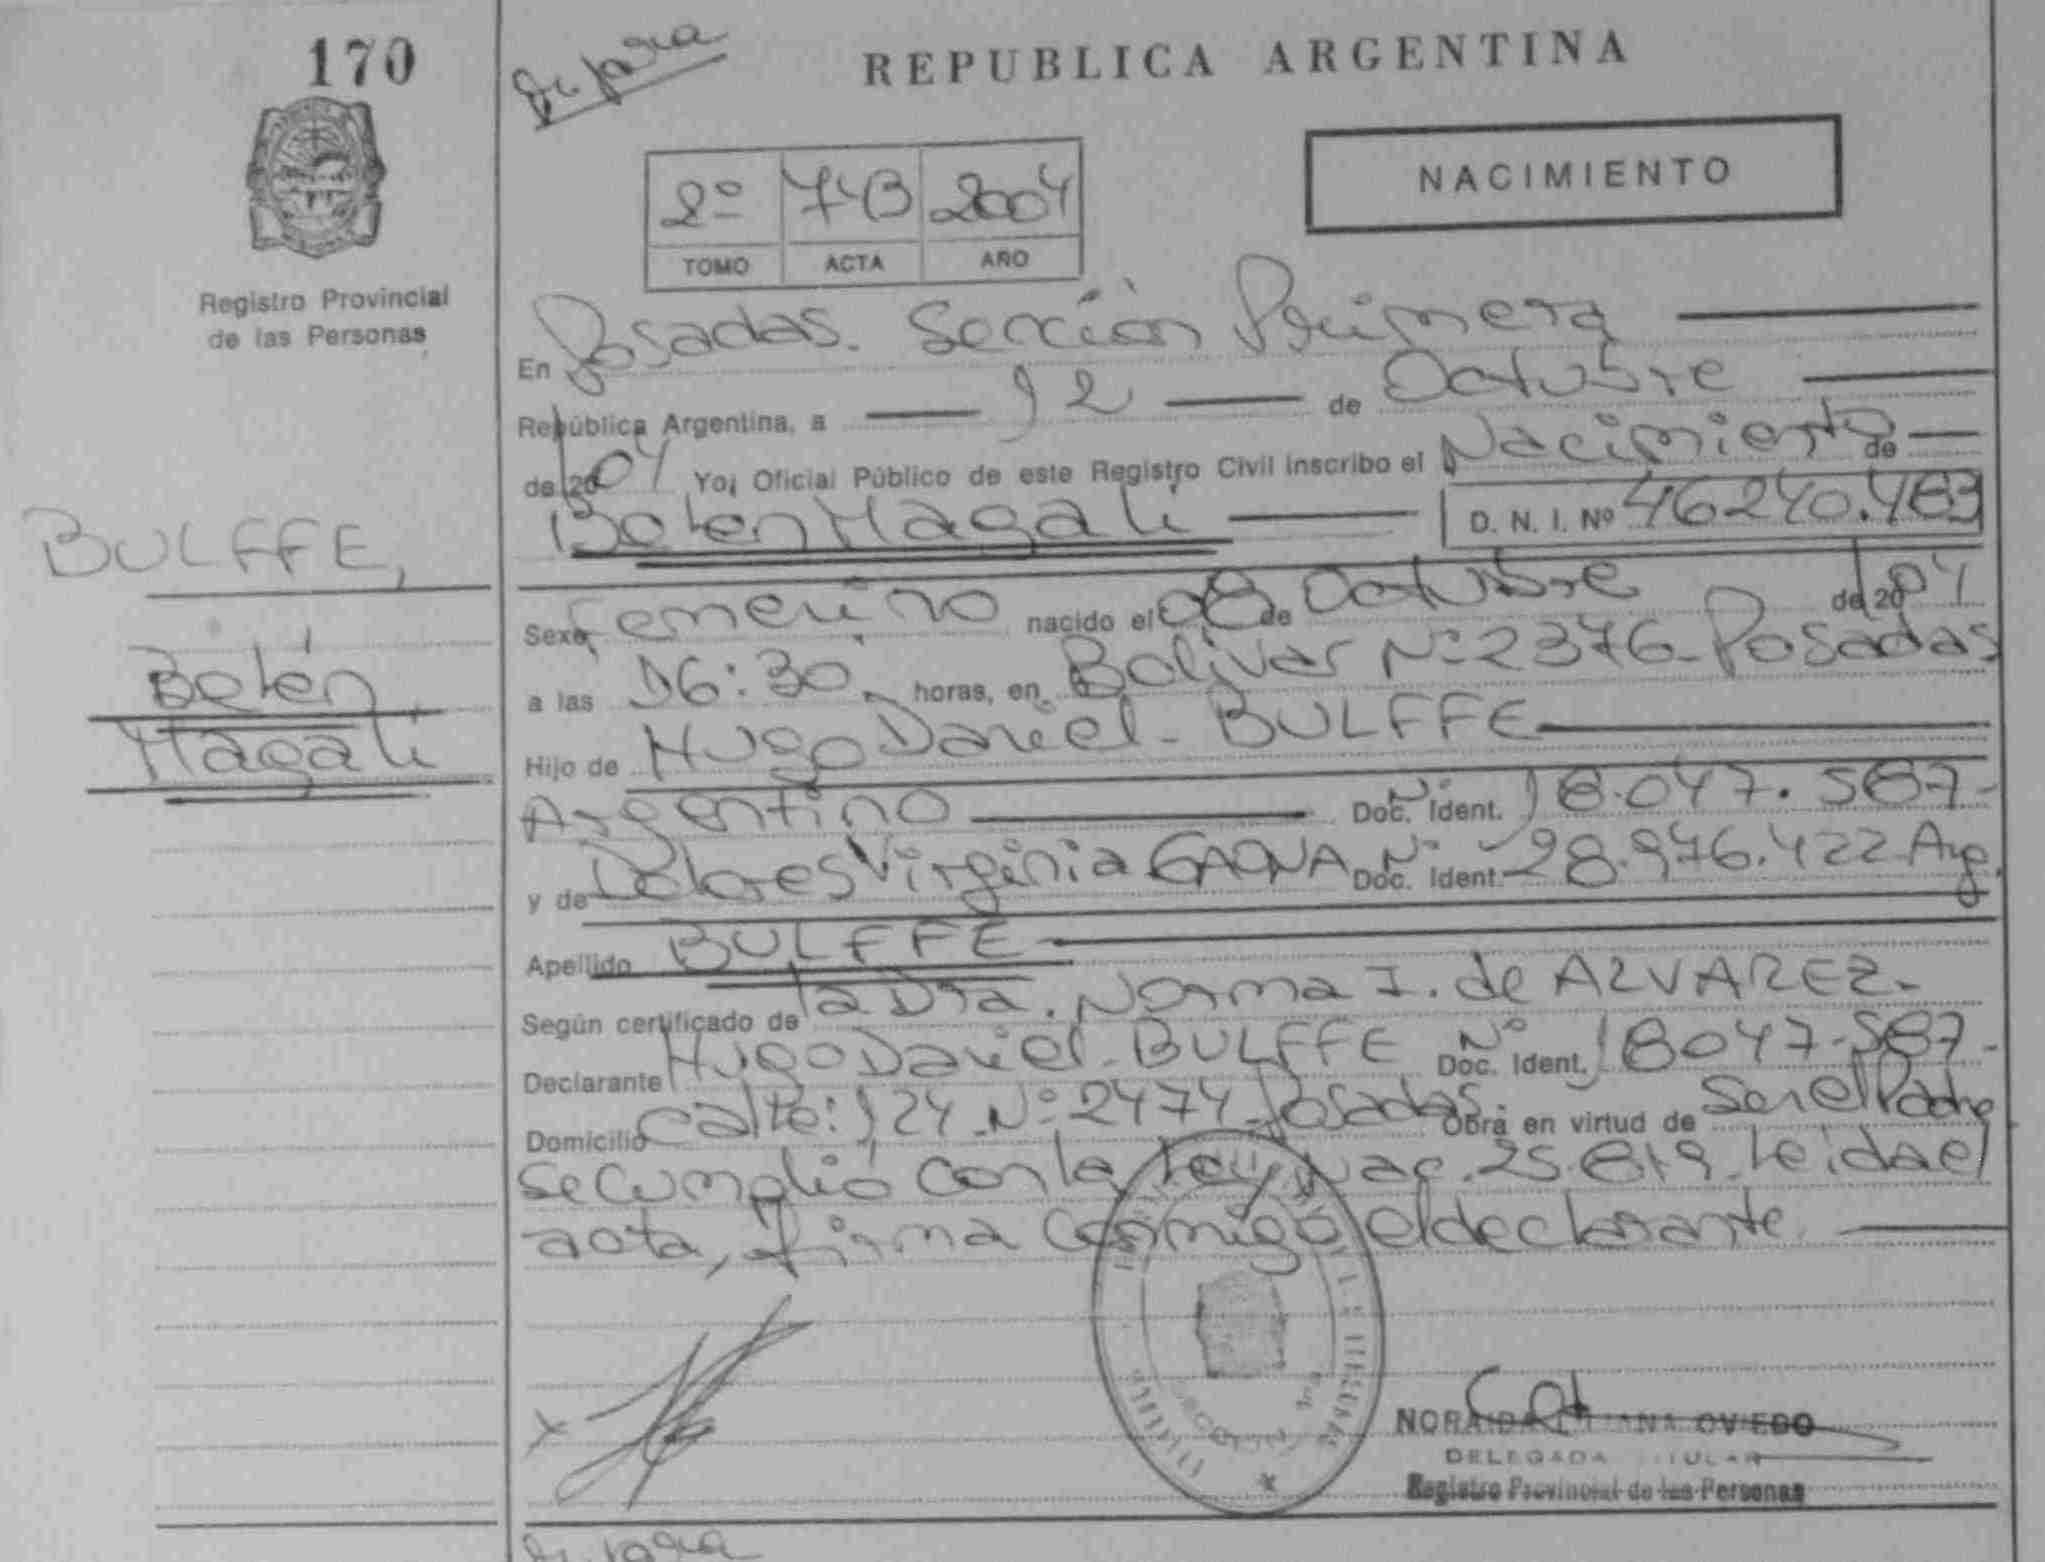 170
REPUBLICA ARGENTINA
NACIMIENTO
2º 743 2004
TOMO ACTA AÑO
Registro Provincial
de las Personas
En Posadas. Sección Primera
República Argentina, a 12 de Octubre
de 2004 Yo, Oficial Público de este Registro Civil inscribo el Nacimiento de
Belén Magali D. N. I. Nº 46240.483
BULFFE,
Belén
Magali
Sexo Femenino nacido el 08 de Octubre de 2004
a las 06:30 horas, en Bolivar Nº 2376 - Posadas
Hijo de Hugo Daniel - BULFFE
Argentino Nº Doc. Ident. 18.047.587-
y de Dolores Virginia GAONA Nº Doc. Ident. 28.976.422 - Arg.
Apellido BULFFE
Según certificado de la Dra. Norma I. de ALVAREZ -
Declarante Hugo Daniel - BULFFE Nº Doc. Ident. 18047.587-
Domicilio Calle: 124 - Nº 2474 - Posadas. Obra en virtud de Ser el Padre
se cumplió con la Ley Nac. 25.819 - Leida el
acta, firma conmigo el declarante
OVIEDO
DELEGADA TITULAR
Registro Provincial de las Personas